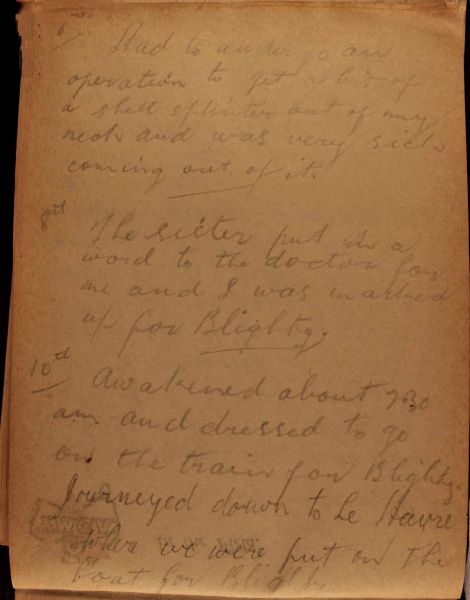 6th
Had to undergo an
operation to get a bit of
a shell splinter out of my
neck and was very sick
coming out of it.
8th
The sister put in a
word to the doctor for
me and I was marked
up for Blighty.
10th
Awakened about 7.30
am and dressed to go
on the train for Blighty.
Journeyed down to Le Havre
where we were put on the
boat for Blighty